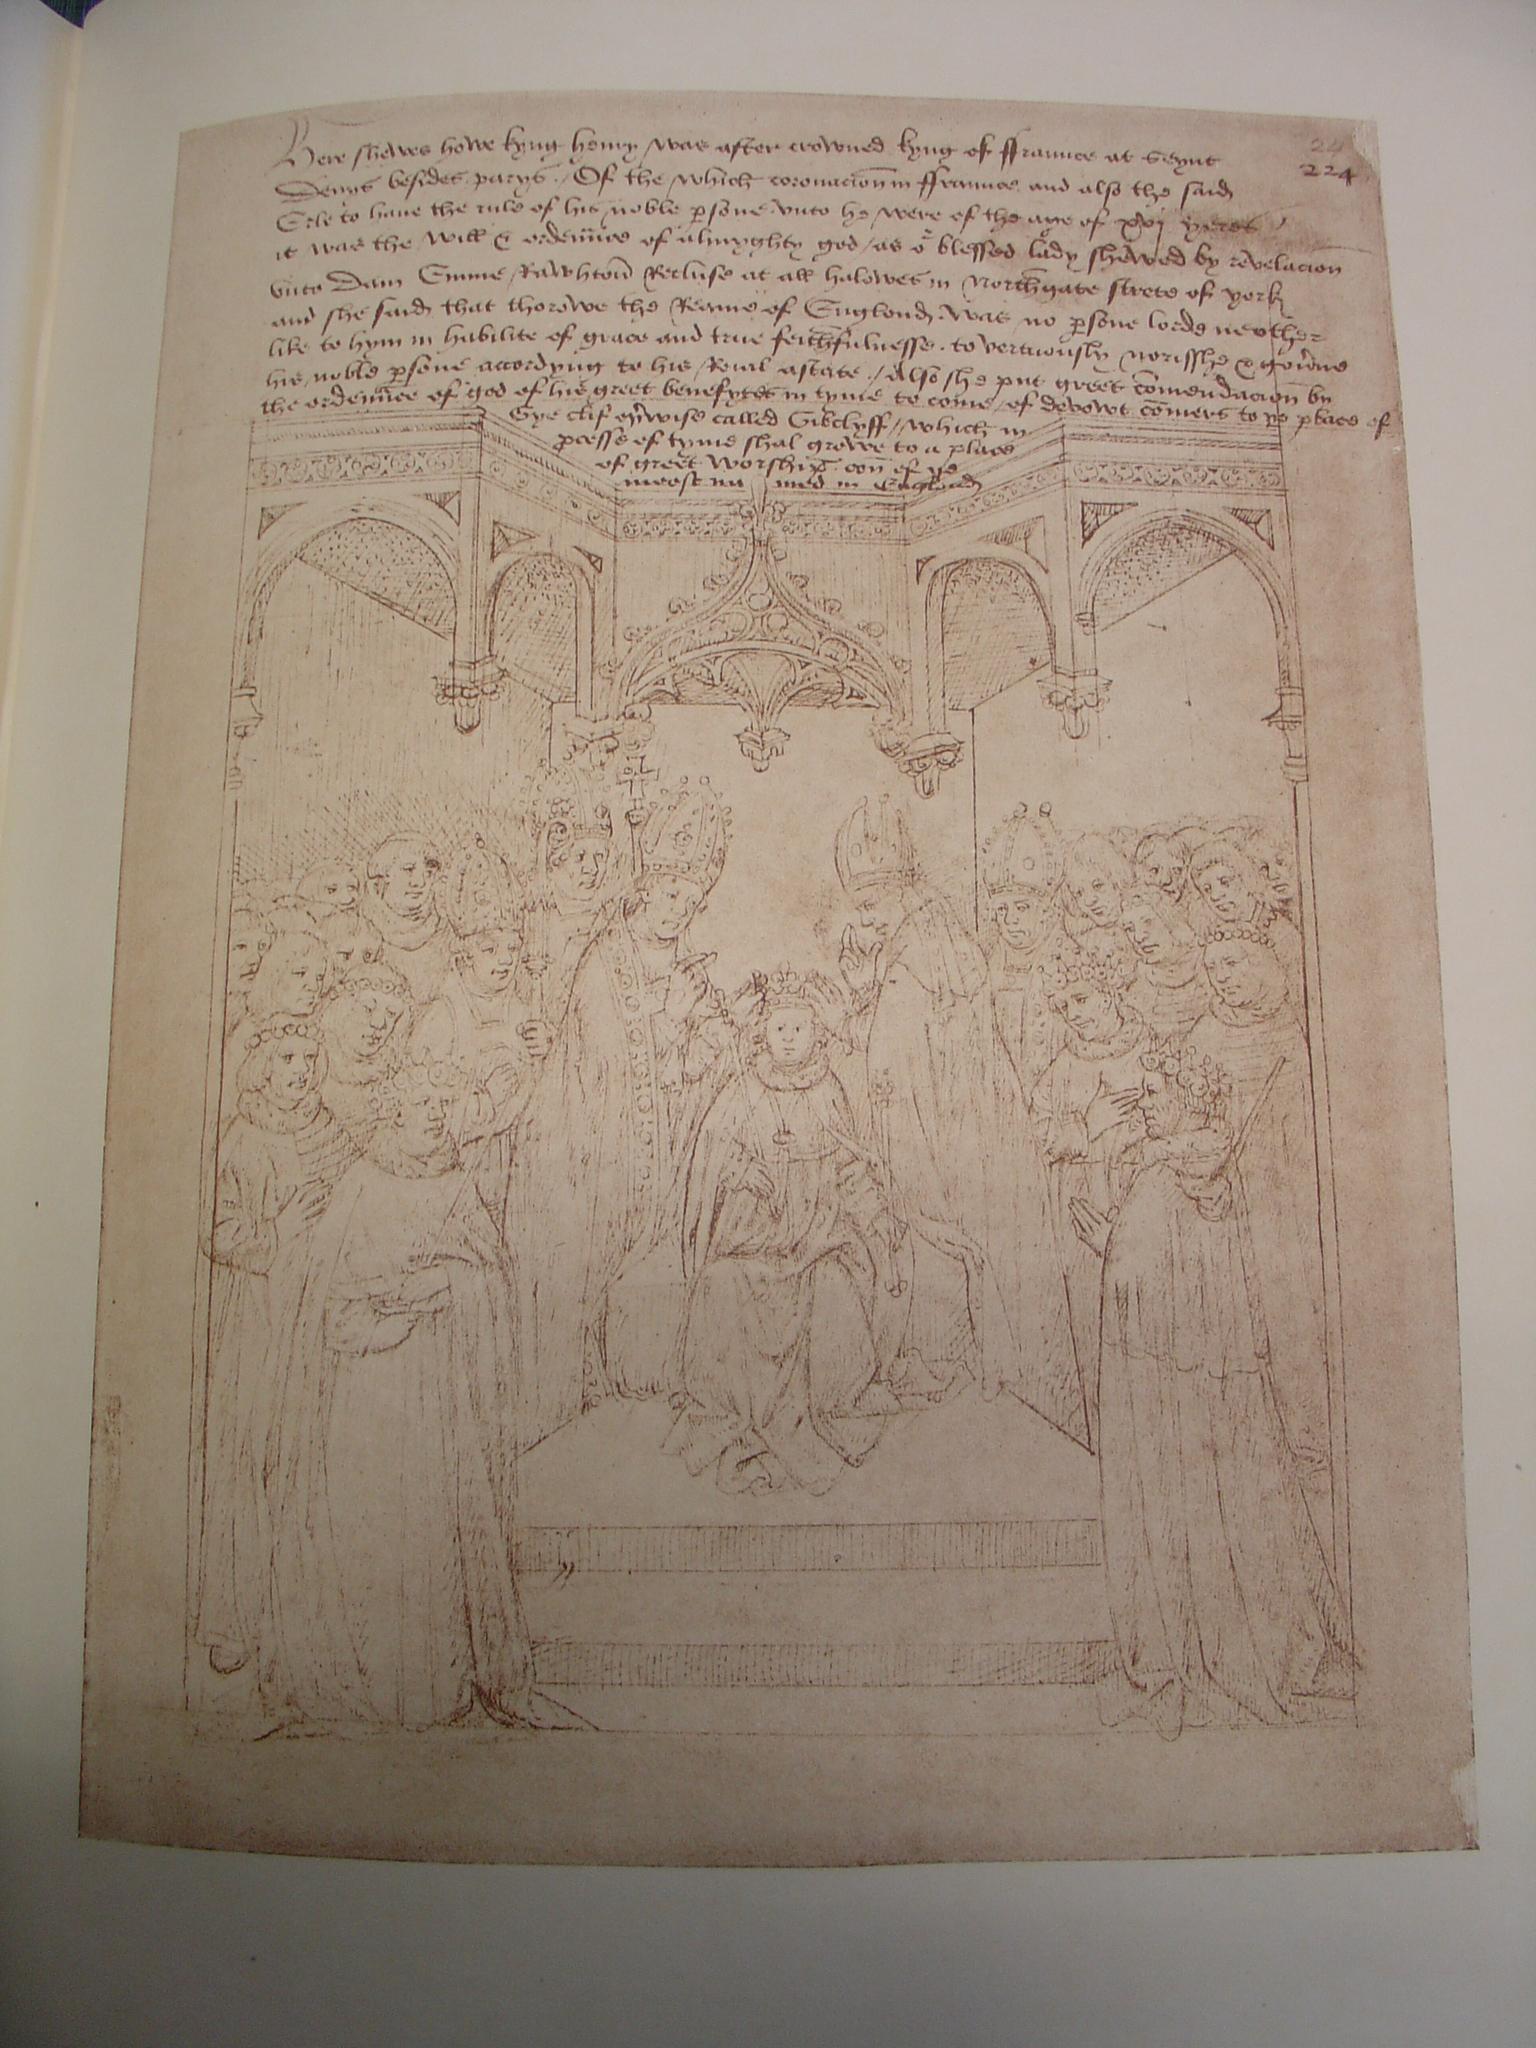 Here shewes howe kyng henry was after crowned kyng of ffraunce at Seynt
24
224
Denys besides parys . Of the which coronacion in ffraunce and also the said
Erle to haue the rule of his noble psone vnto he were of the age of xvj yeres
it was the will & ordenñce of almyghty god / as oʳ blessed lady shewed by revelacion
vnto Dam Emme Rawhtoñ Recluse at all halowes in Northgate strete of york
and she said that thorowe the Reame of Englond was no psone lorde ne other
like to hym in habilite of grace and true feithfulnesse . to vertuously norisshe & gouerne
his noble psone accordyng to his Roial astate . / Also she put greet cõmendacion by
the ordenñce of god of his greet benefytes in tyme to come / of devowt cõmers to yᵉ place of
Gye clif oyʳwise called Gibclyff / which in
pcesse of tyme shal growe to a place
of greet worship oon of yᵉ
moost na med in Englond